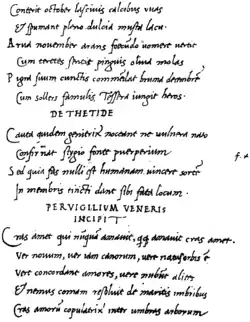 Conterit october lasciuis calcibus uuas
Et spumant pleno dulcia musta lacu.
Arua november arans foecundo vomere
Cum teretes pinguis oliva molas
Pigna suum cunctis bruma
Cum sollers famulis Tessera iungit heros.
DE THETIDE
Cauta quidem genitrix noceant ne vulnera nato
stygio fonte puerperium
Sed quia fas nulli est humanam vincere
In membris tincti sibi fata locum.
PERVIGILIUM VENERIS
INCIPIT
Cras amet qui nunquam amauit, qq amauit cras amet.
Ver novum, ver iam canorum, vere
Ver concordant amores, vere nubunt alites
Et nemus comam resolvit de maritis imbribus
Cras amorum copulatrix inter umbras arborum